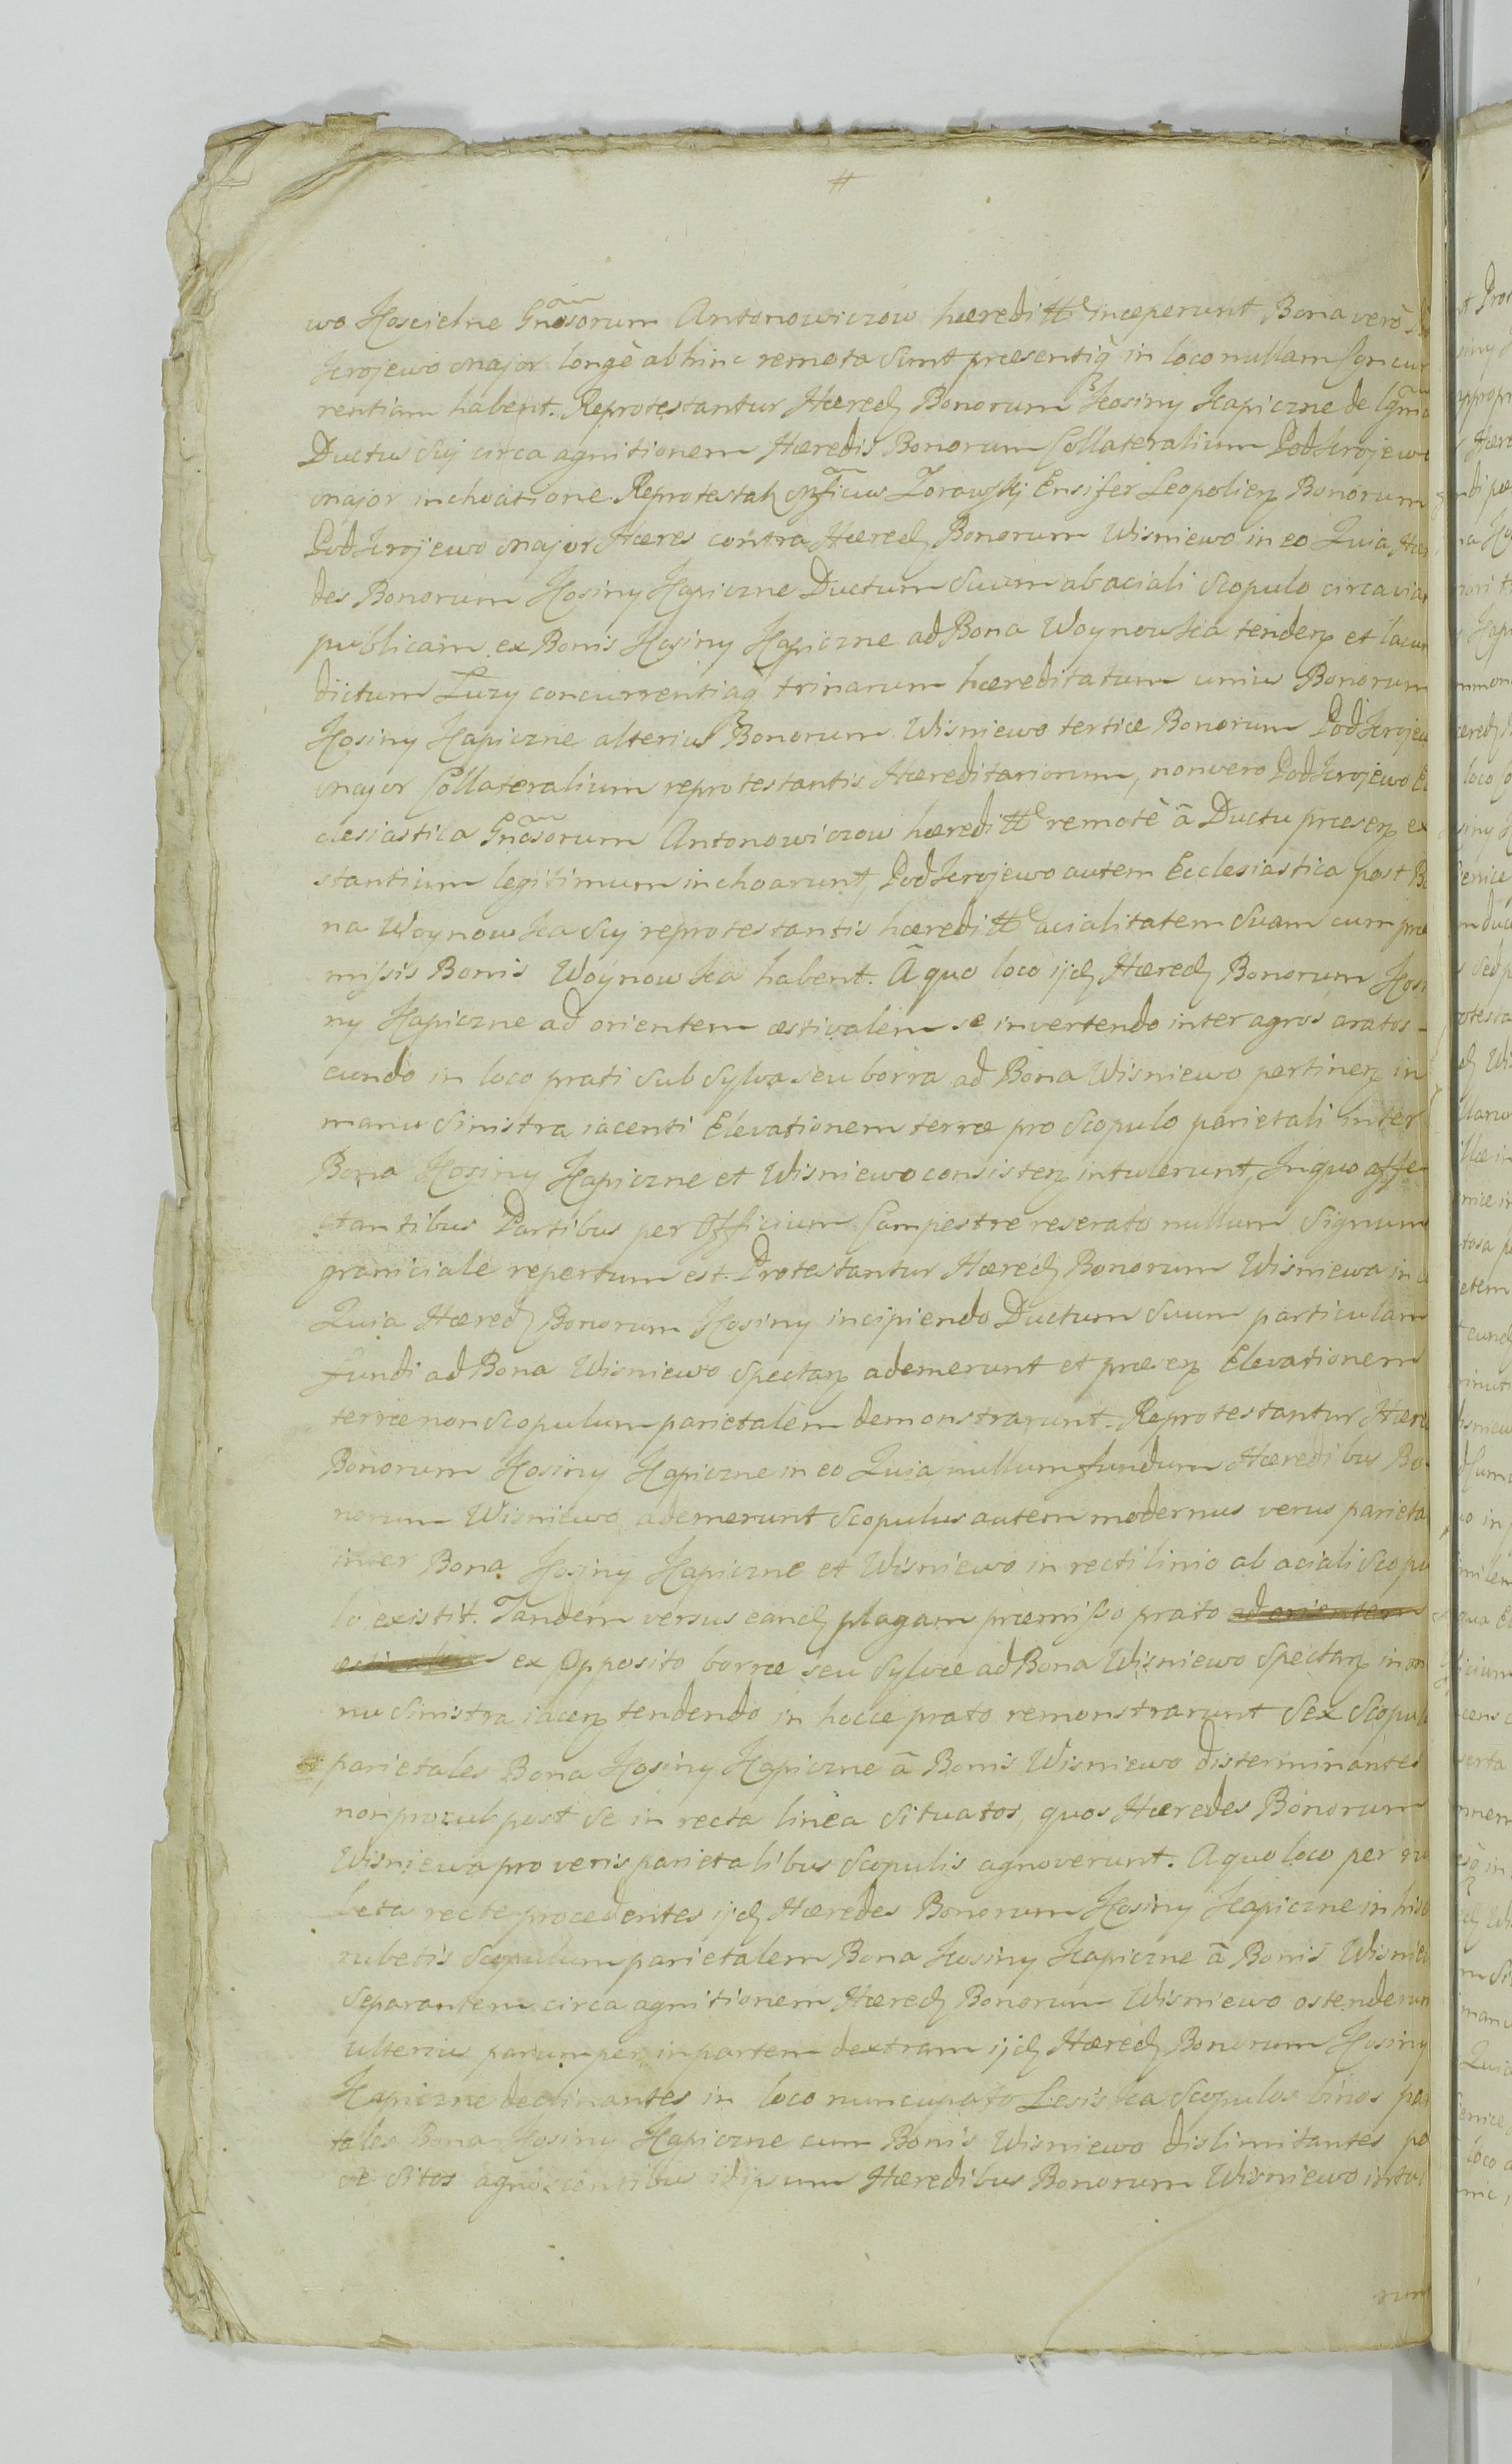 #
wo Koscielne Gnosorum Antonowiczow hæreditt inceperunt Bona verò
krojewo major longè abhinc remota sunt præsentiq in loco nullam concur
rentiam habent. Reprotestantur Hæred Bonorum Kosiny Kapiczne de lgma
Ductus sui circa agnitionem Hæredis Bonorum Collateralium Podkrojewo
major inchoatione. Reprotestatr Mficus Zorawskj Ensifer Leopolien Bonorum
Podkrojewo major Hæres contra Hæred Bonorum Wisniewo in eo Quia Hær
des Bonorum Kosiny Kapiczne Ductum Suum ab aciali Scopulo circa viam
publicam ex Bonis Kosiny Kapiczne ad Bona Woynowska tenden et lacum
dictum Luzy concurrentiaq trinarum hæreditatum unius Bonorum
Kosiny Kapiczne alterius Bonorum Wisniewo tertiæ Bonorum Podkrojew
major Collateralium reprotestantis Hæreditariorum, non vero Podkrojewo E
clesiastica Gnosorum Antonowiczow hæreditt remotè â Ductu præsen ex
stantium legitimum inchoarunt, Podkrojewo autem Ecclesiastica post B
na Woynowska Scij reprotestantis hæreditt acialitatem Suam cum præ
missis Bonis Woynowska habent. Â quo loco ijd Hæred Bonorum Kosi
ny Kapiczne ad orientem æstivalem se invertendo inter agros aratos
eundo in loco prati sub Sylva seu borra ad Bona Wisniewo pertinen in
manu Sinistra iacenti Elevationem terræ pro Scopulo parietali inter
Bona Kosiny Kapiczne et Wisniewo consisten intulerunt, In quo affe
ctantibus Partibus per Officium Campestre reserato nullum Signum
graniciale repertum est. Protestantur Hæred Bonorum Wisniewa in
Quia Hæred Bonorum Kosiny incipiendo Ductum Suum particulam
fundi ad Bona Wisniewo Spectan ademerunt et præsen Elevationem
terræ non Scopulum parietalem demonstrarunt. Reprotestantur Hære
Bonorum Kosiny Kapiczne in eo Quia nullum fundum Hæredibus Bo
norum Wisniewo ademerunt Scopulus autem modernus verus parieta
inter Bona Kosiny Kapiczne et Wisniewo in rectilinio ab aciali Scopu
lo existit. Tandem versus eand plagam præmisso prato ad orientem
æstivalem ex Opposito borræ seu Sylvæ ad Bona Wisniewo Spectan in m
nu Sinistra iacen tendendo in hocce prato remonstrarunt Sex Scopul
parietales Bona Kosiny Kapiczne â Bonis Wisniewo disterminantes
non procul post se in recta linea situatos, quos Hæredes Bonorum
Wisniewa pro veris parietalibus Scopulis agnoverunt. A quo loco per ru
beta recte procedentes ijd Hæredes Bonorum Kosiny Kapiczne in his
rubetis Scopulum parietalem Bona Kosiny Kapiczne â Bonis Wisniew
Separantem circa agnitionem Hæred Bonorum Wisniewo ostenderun
ulterius parumper in partem dextram ijd Hæred Bonorum Kosiny
Kapiczne declinantes in loco nuncupato Lesiska Scopulos binos par
tales Bona Kosiny Kapiczne cum Bonis Wisniewo dislimitantes po
se sitos agnoscentibus idipsum Hæredibus Bonorum Wisniewo intul
rum